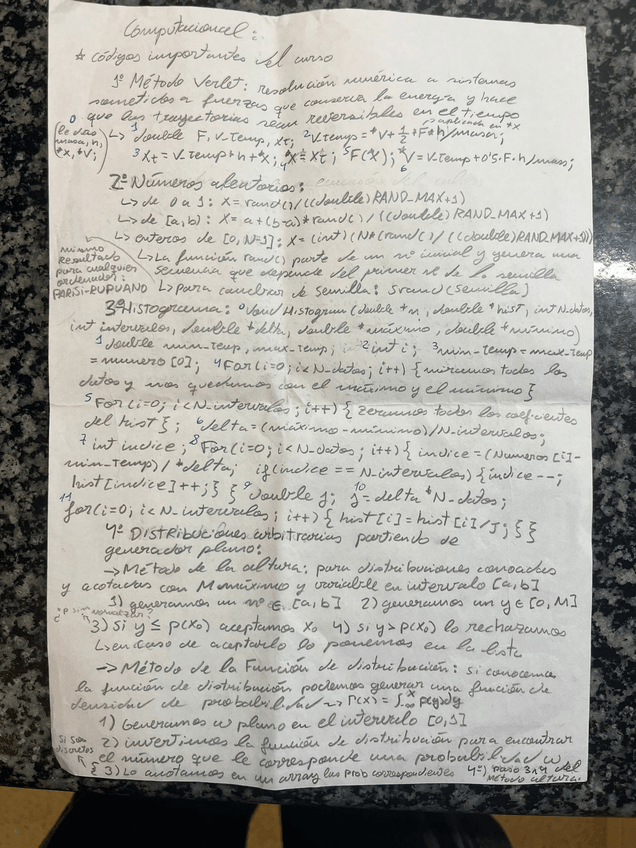 Computacional:
* códigos importantes del curso
1º Método Verlet: resolución numérica a sistemas
sometidos a fuerzas que conserva la energía y hace
que las trayectorias sean reversibles en el tiempo
0 (le doy masa, h, *x, *v;)
↳ 1 double F, v_temp, xt; 2 v_temp = *v + 1/2 * F * h/masa;
3 xt = v_temp * h + *x; 4 *x = xt; 5 F(*x); 6 *v = v_temp + 0'5·F·h/masa;
2º Números aleatorios:
↳ de 0 a 1: x = rand()/((double)RAND_MAX+1)
↳ de [a,b): x = a+(b-a)*rand()/((double)RAND_MAX+1)
↳ enteros de [0,N-1]: x = (int)(N*(rand()/((double)RAND_MAX+1)))
↳ La función rand() parte de un nº inicial y genera una
secuencia que depende del primer nº de la semilla
↳ para cambiar de semilla: srand(semilla)
mismo
resultado
para cualquier
ordenador:
PARISI-RAPUANO
3º Histograma: 0 void Histogram (double *n, double *hist, int N_datos,
int intervalos, double *delta, double *máximo, double *mínimo)
1 double min_temp, max_temp; 2 int i; 3 min_temp = max_temp
= numero[0]; 4 For(i=0; i<N_datos; i++) { miramos todos los
datos y nos quedamos con el máximo y el mínimo }
5 For(i=0; i<N_intervalos; i++) { zeramos todos los coeficientes
del hist }; 6 delta = (máximo-mínimo)/N_intervalos;
7 int indice; 8 For(i=0; i<N_datos; i++) { indice = (Numeros[i]-
min_temp)/*delta; if(indice == N_intervalos) { indice--;
hist[indice]++; } } 9 double j; 10 j = delta * N_datos;
11 for(i=0; i<N_intervalos; i++) { hist[i] = hist[i]/j; } }
4º Distribuciones arbitrarias partiendo de
generador plano:
→ Método de la altura: para distribuciones conocidas
y acotadas con M máximo y variable en intervalo [a,b]
1) generamos un nº ∈ [a,b] 2) generamos un y ∈ [0,M]
3) si y ≤ p(x₀) aceptamos x₀ 4) si y > p(x₀) lo rechazamos
↳ en caso de aceptarlo lo ponemos en la lista
→ Método de la Función de distribución: si conocemos
la función de distribución podemos generar una función de
densidad de probabilidad → P(x) = ∫_{-∞}^{x} p(y)dy
1) Generamos w plano en el intervalo [0,1]
2) invertimos la función de distribución para encontrar
el número que le corresponde una probabilidad w
si son
discretos
{ 3) Lo anotamos en un array las prob correspondientes 4º) paso 3 y 4 del
método altura.